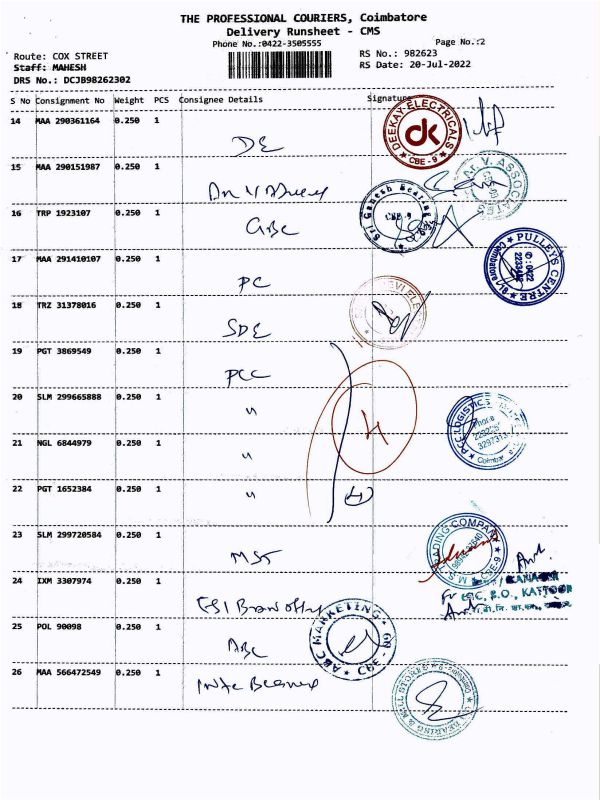 THE PROFESSIONAL COURIERS, Coimbatore
Delivery Runsheet - CMS
Phone No.:0422-3505555
Page No.:2
Route: COX STREET
RS No.: 982623
Staff: MAHESH
RS Date: 20-Jul-2022
DRS No.: DCJB98262302
S No Consignment No Weight PCS Consignee Details Signature
14 MAA 290361164 0.250 1
DE
DEEKAY ELECTRICALS
dk
CBE - 9
15 MAA 290151987 0.250 1
V. ASSOCIATES
16 TRP 1923107 0.250 1
GBC
Sri Ganesh Bearing
CBE-9
17 MAA 291410107 0.250 1
PC
PULLEYS CENTRE
0422
Coimbatore
18 TRZ 31378016 0.250 1
SDE
19 PGT 3869549 0.250 1
PCC
20 SLM 299665888 0.250 1
"
4
PCC LOGISTICS
Phone
21 NGL 6844979 0.250 1
"
22 PGT 1652384 0.250 1
"
4
23 SLM 299720584 0.250 1
MST
TRADING COMPANY
CBE-9
24 IXM 3307974 0.250 1
ESI
KATTOOR
25 POL 90098 0.250 1
ABC
ABC MARKETING
26 MAA 566472549 0.250 1
BEARING & MILL STORES